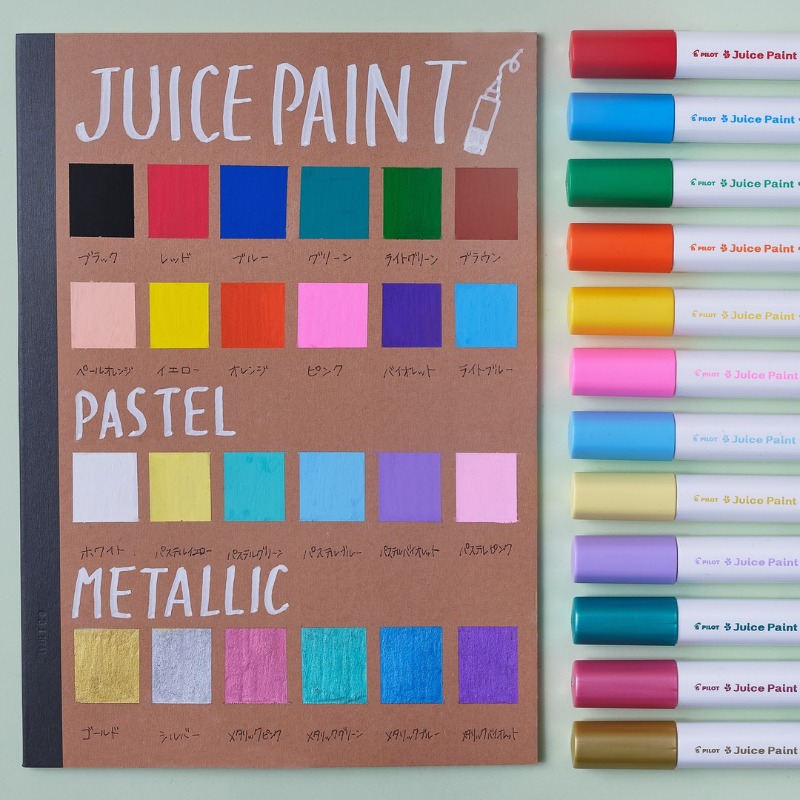 JUICE PAINT
ブラック レッド ブルー グリーン ライトグリーン ブラウン
ペールオレンジ イエロー オレンジ ピンク バイオレット ライトブルー
PASTEL
ホワイト パステルイエロー パステルグリーン パステルブルー パステルバイオレット パステルピンク
METALLIC
ゴールド シルバー メタリックピンク メタリックグリーン メタリックブルー メタリックバイオレット
PILOT Juice Paint
PILOT Juice Paint
PILOT Juice Paint
PILOT Juice Paint
PILOT Juice Paint
PILOT Juice Paint
PILOT Juice Paint
PILOT Juice Paint
PILOT Juice Paint
PILOT Juice Paint
PILOT Juice Paint
PILOT Juice Paint